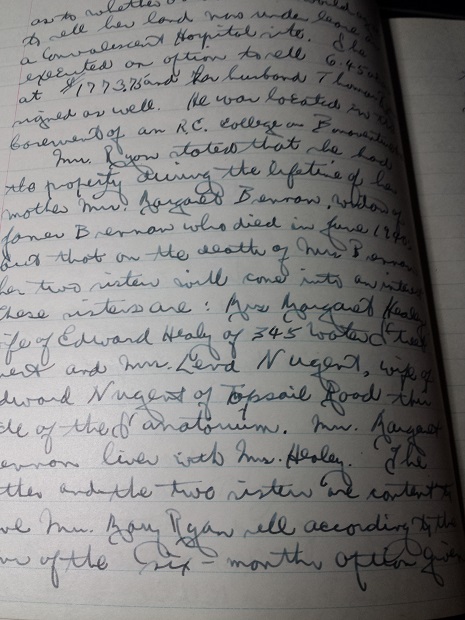 as to whether
to sell her land now under lease
a Convalescent Hospital into. She
executed an option to sell 6.45
at $1773.75 and her husband Thomas
signed as well. He was located in
basement of an R.C. College on Bonaventure
Mrs. Ryan stated that she had
the property during the lifetime of her
mother Mrs. Margaret Brennan, widow of
James Brennan who died in June 19
but that on the death of Mrs Brennan
her two sisters will come into an
These sisters are: Mrs Margaret Healy
wife of Edward Healy of 345 Water Street
West and Mrs. Nugent, wife of
Edward Nugent of Topsail Road this
side of the Sanatorium. Mrs. Margaret
Brennan lives with Mrs. Healy. The
mother and the two sisters are content to
Mrs. Mary Ryan sell according to the
of the six-months option given